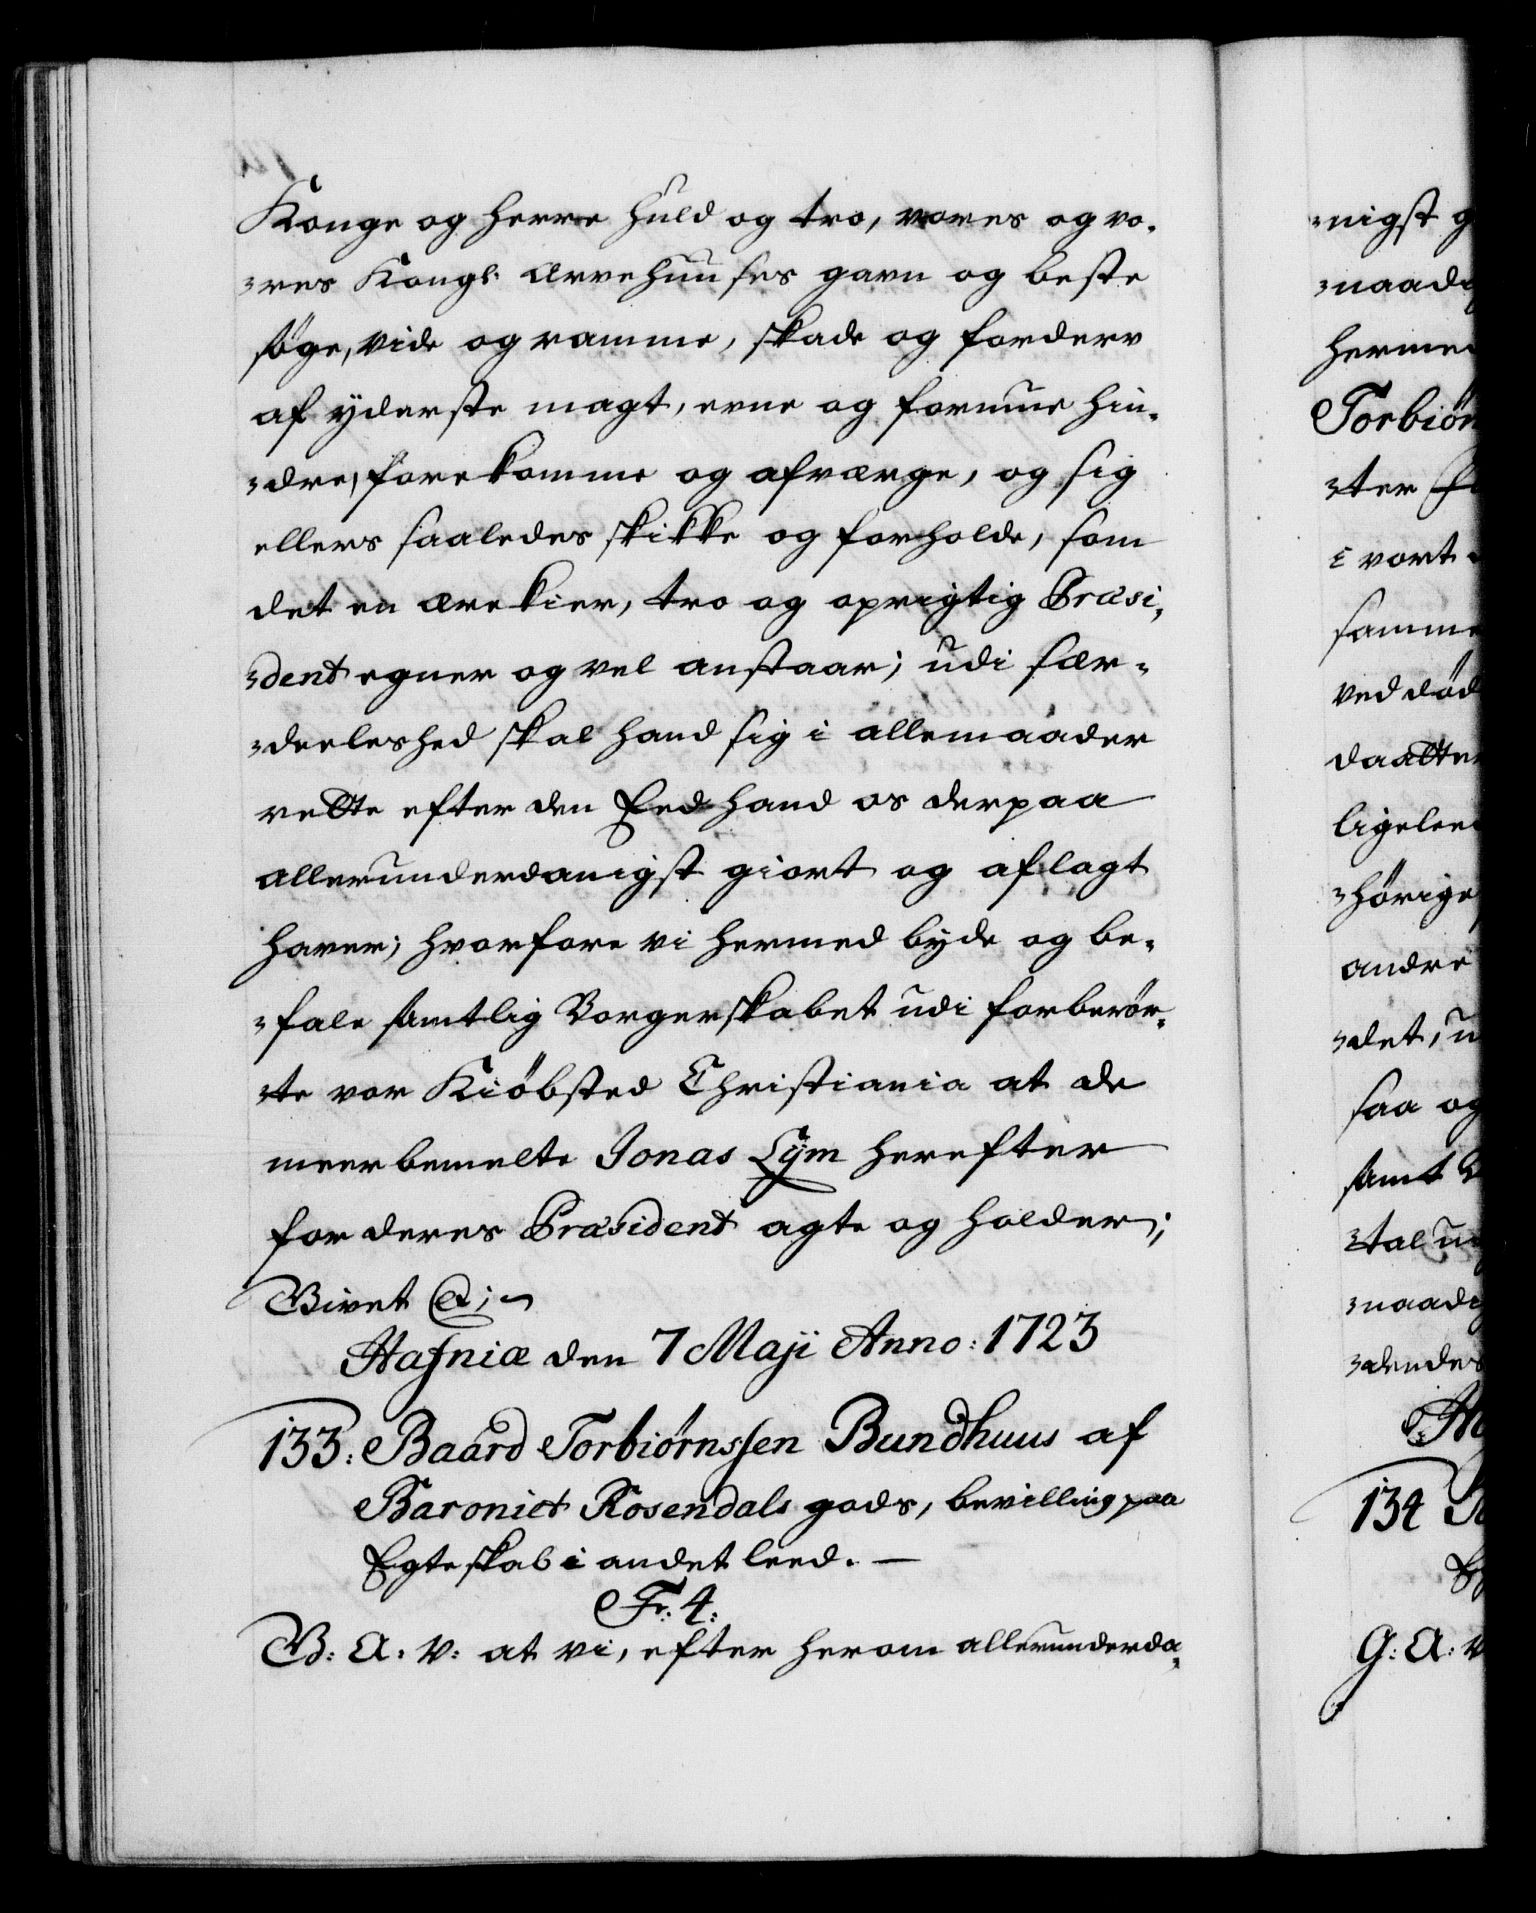 Konge og Herre huld og tro, vores og vo-
-res Kongl: Arvehuuses gavn og beste
søge, vide og ramme, skade og forderv
af yderste magt, evne og formue hin-
-dre, forekomme og afværge, og sig
ellers saaledes skikke og forholde, som
det en ærekier, tro og oprigtig Præsi-
-dent egner og vel anstaar; udi sær-
-deeleshed skal hand sig i allemaader
rette efter den Eed hand os derpaa
allerunderdanigst giort og aflagt
haver; hvorfore vi hermed byde og be-
-fale samtlig Borgerskabet udi forberør-
-te vor Kiøbsted Christiania at de
meerbemelte Jonas Lym herefter
for deres Præsident agte og holder;
Givet &;
Hafniæ den 7 Maji Anno: 1723
133: Baard Torbiørnssen Bundhuus af
Baroniet Rosendals gods, bevilling paa
Egteskab i andet leed. —
Fr: 4:
G: A: V: at vi, efter herom allerunderda-
-nigst g
-naadi
hermed
Torbiør
-ter
i vort
samme
ved død
daatter
ligelee
-hørige
andre
-det, u
saa og
samt
-tal
-naadi
-dendes
134
G: A: V